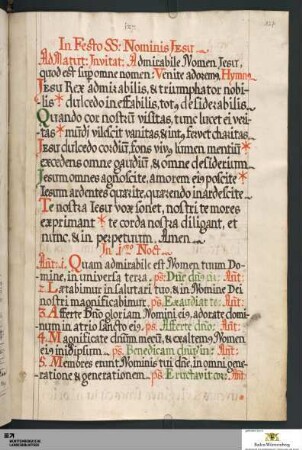 327.
327
In Festo SS: Nominis Jesu
Ad Matut: Invitat: Admirabile Nomen Jesu,
quod est sup omne nomen: Venite adorem9 Hymn9
Jesu Rex admirabilis, & triumphator nobi-
lis * dulcedo ineffabilis, tot9 desiderabilis.
Quando cor nostrũ visitas, tunc lucet ei veri-
tas * mũdi vilescit vanitas, & int9 fervet charitas
Jesu dulcedo cordiũ, fons viv9 lumen mentiũ *
excedens omne gaudiũ, & omne desiderium
Jesum omnes agnoscite, amorem ei9 poscite *
Jesum ardentes quærite, quærendo inardescite
Te nostra Jesu vox sonet, nostri te mores
exprimant * te corda nostra diligant, et
nunc, & in perpetuum. Amen
In 1mo Noct.
Ant: 1. Quam admirabile est Nomen tuum Do-
mine, in universa terra. ps. Dñe dñs nr: Ant:
2. Lætabimur in salutari tuo, & in Nomine Dei
nostri magnificabimur. ps. Exaudiat te: Ant:
3. Afferte Dño gloriam Nomini ei9, adorate domi-
num in atrio sancto ei9. ps. Afferte dño: Ant:
4. Magnificate dñum mecũ, & exaltem9 Nomen
ei9 in idipsum. ps. Benedicam dñum: Ant:
5. Memores erunt Nominis tui dñe, in omni gene-
ratione & generationem. ps. Eructavit cor: Ant:
Baden-Württemberg